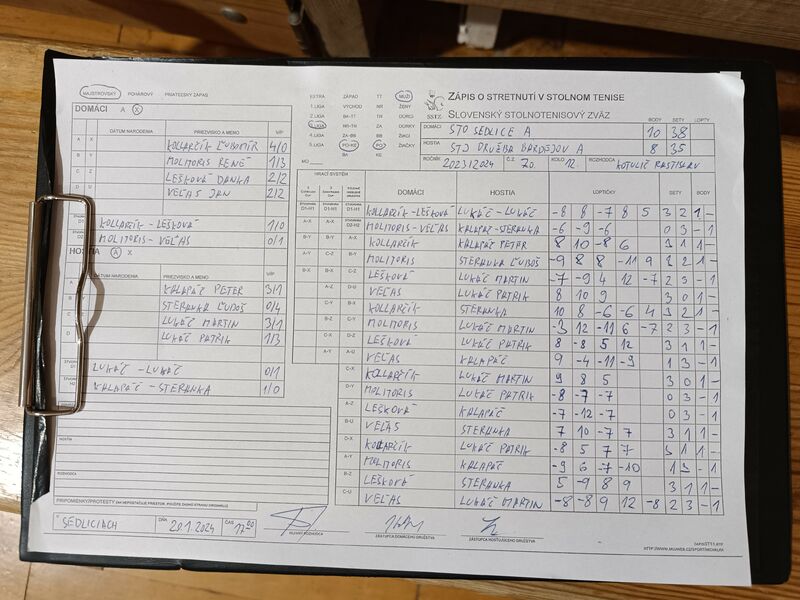 MAJSTROVSKÝ POHÁROVÝ PRIATEĽSKÝ ZÁPAS
DOMÁCI A X
DÁTUM NARODENIA PRIEZVISKO A MENO V/P
A X KOLLARČÍK ĽUBOMÍR 4/0
B Y MOLITORIS RENÉ 1/3
C Z LEŠKOVÁ DANKA 2/2
D U VEĽAS JAN 2/2
KOLLARČÍK - LEŠKOVÁ 1/0
MOLITORIS - VEĽAS 0/1
HOSTIA A X
DÁTUM NARODENIA PRIEZVISKO A MENO V/P
KALAPÁČ PETER 3/1
STERANKA ĽUBOŠ 0/4
LUKÁČ MARTIN 3/1
LUKÁČ PATRIK 1/3
LUKÁČ - LUKÁČ 0/1
KALAPÁČ - STERANKA 1/0
HOSTIA
ROZHODCA
PRIPOMIENKY/PROTESTY
SEDLICIACH DŇA 20.1.2024 ČAS 17 00
HLAVNÝ ROZHODCA
ZÁSTUPCA DOMÁCEHO DRUŽSTVA
ZÁSTUPCA HOSŤUJÚCEHO DRUŽSTVA
EXTRA ZÁPAD TT MUŽI
1.LIGA VÝCHOD NR ŽENY
2.LIGA BA-TT TN DORCI
3.LIGA NR-TN ZA DORKY
4.LIGA ZA-BB BB ŽIACI
5.LIGA PO-KE PO ŽIAČKY
BA KE
MO
SSTZ
ZÁPIS O STRETNUTÍ V STOLNOM TENISE
SLOVENSKÝ STOLNOTENISOVÝ ZVÄZ
BODY SETY LOPTY
DOMÁCI STO SEDLICE A 10 38
HOSTIA STJ DRUŽBA BARDEJOV A 8 35
ROČNÍK 2023/2024 Č.Z. 70. KOLO 12. ROZHODCA KOTULIČ RASTISLAV
HRACÍ SYSTÉM
DOMÁCI HOSTIA LOPTIČKY SETY BODY
KOLLARČÍK - LEŠKOVÁ LUKÁČ - LUKÁČ -8 8 -7 8 5 3 2 1 -
MOLITORIS - VEĽAS KALAPÁČ - STERANKA -6 -9 -6 0 3 - 1
KOLLARČÍK KALAPÁČ PETER 8 10 -8 6 3 1 1 -
MOLITORIS STERANKA ĽUBOŠ -9 8 8 -11 9 3 2 1 -
LEŠKOVÁ LUKÁČ MARTIN -7 -9 4 12 -7 2 3 - 1
VEĽAS LUKÁČ PATRIK 8 10 9 3 0 1 -
KOLLARČÍK STERANKA 10 8 -6 -6 4 3 2 1 -
MOLITORIS LUKÁČ MARTIN -3 12 -11 6 -7 2 3 - 1
LEŠKOVÁ LUKÁČ PATRIK 8 -8 5 12 3 1 1 -
VEĽAS KALAPÁČ 9 -4 -11 -9 1 3 - 1
KOLLARČÍK LUKÁČ MARTIN 9 8 5 3 0 1 -
MOLITORIS LUKÁČ PATRIK -8 -7 -7 0 3 - 1
LEŠKOVÁ KALAPÁČ -7 -12 -7 0 3 - 1
VEĽAS STERANKA 7 10 -7 7 3 1 1 -
KOLLARČÍK LUKÁČ PATRIK -8 5 7 7 3 1 1 -
MOLITORIS KALAPÁČ -9 6 -7 -10 1 3 - 1
LEŠKOVÁ STERANKA 5 -9 8 9 3 1 1 -
VEĽAS LUKÁČ MARTIN -8 -8 9 12 -8 2 3 - 1